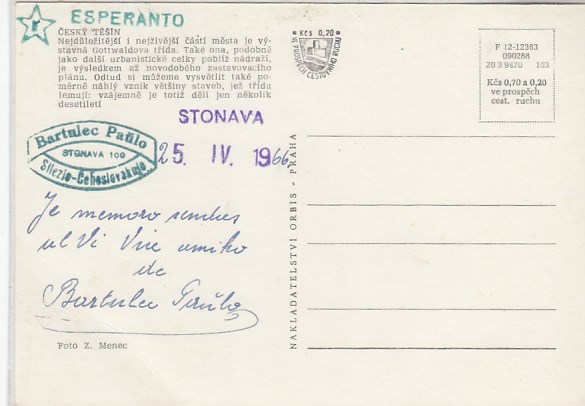 ESPERANTO
ČESKÝ TĚŠÍN
Nejdůležitější i nejživější částí města je vý-
stavná Gottwaldova třída. Také ona, podobně
jako další urbanistické celky poblíž nádraží,
je výsledkem až novodobého zastavovacího
plánu. Odtud si můžeme vysvětlit také po-
měrně náhlý vznik většiny staveb, jež třídu
lemují: vzájemně je totiž dělí jen několik
desetiletí
Kčs 0,20
VE PROSPĚCH CESTOVNÍHO RUCHU
F 12-12383
090288
20 3 9670 103
Kčs 0,70 a 0,20
ve prospěch
cest. ruchu
STONAVA
25. IV. 1966
Bartulec Paŭlo
STONAVA 100
Silezio-Ĉeĥoslovakujo
Je memoro sendas
al Vi Via amiko
de
Bartulec Paŭlo
NAKLADATELSTVÍ ORBIS - PRAHA
Foto Z. Menec